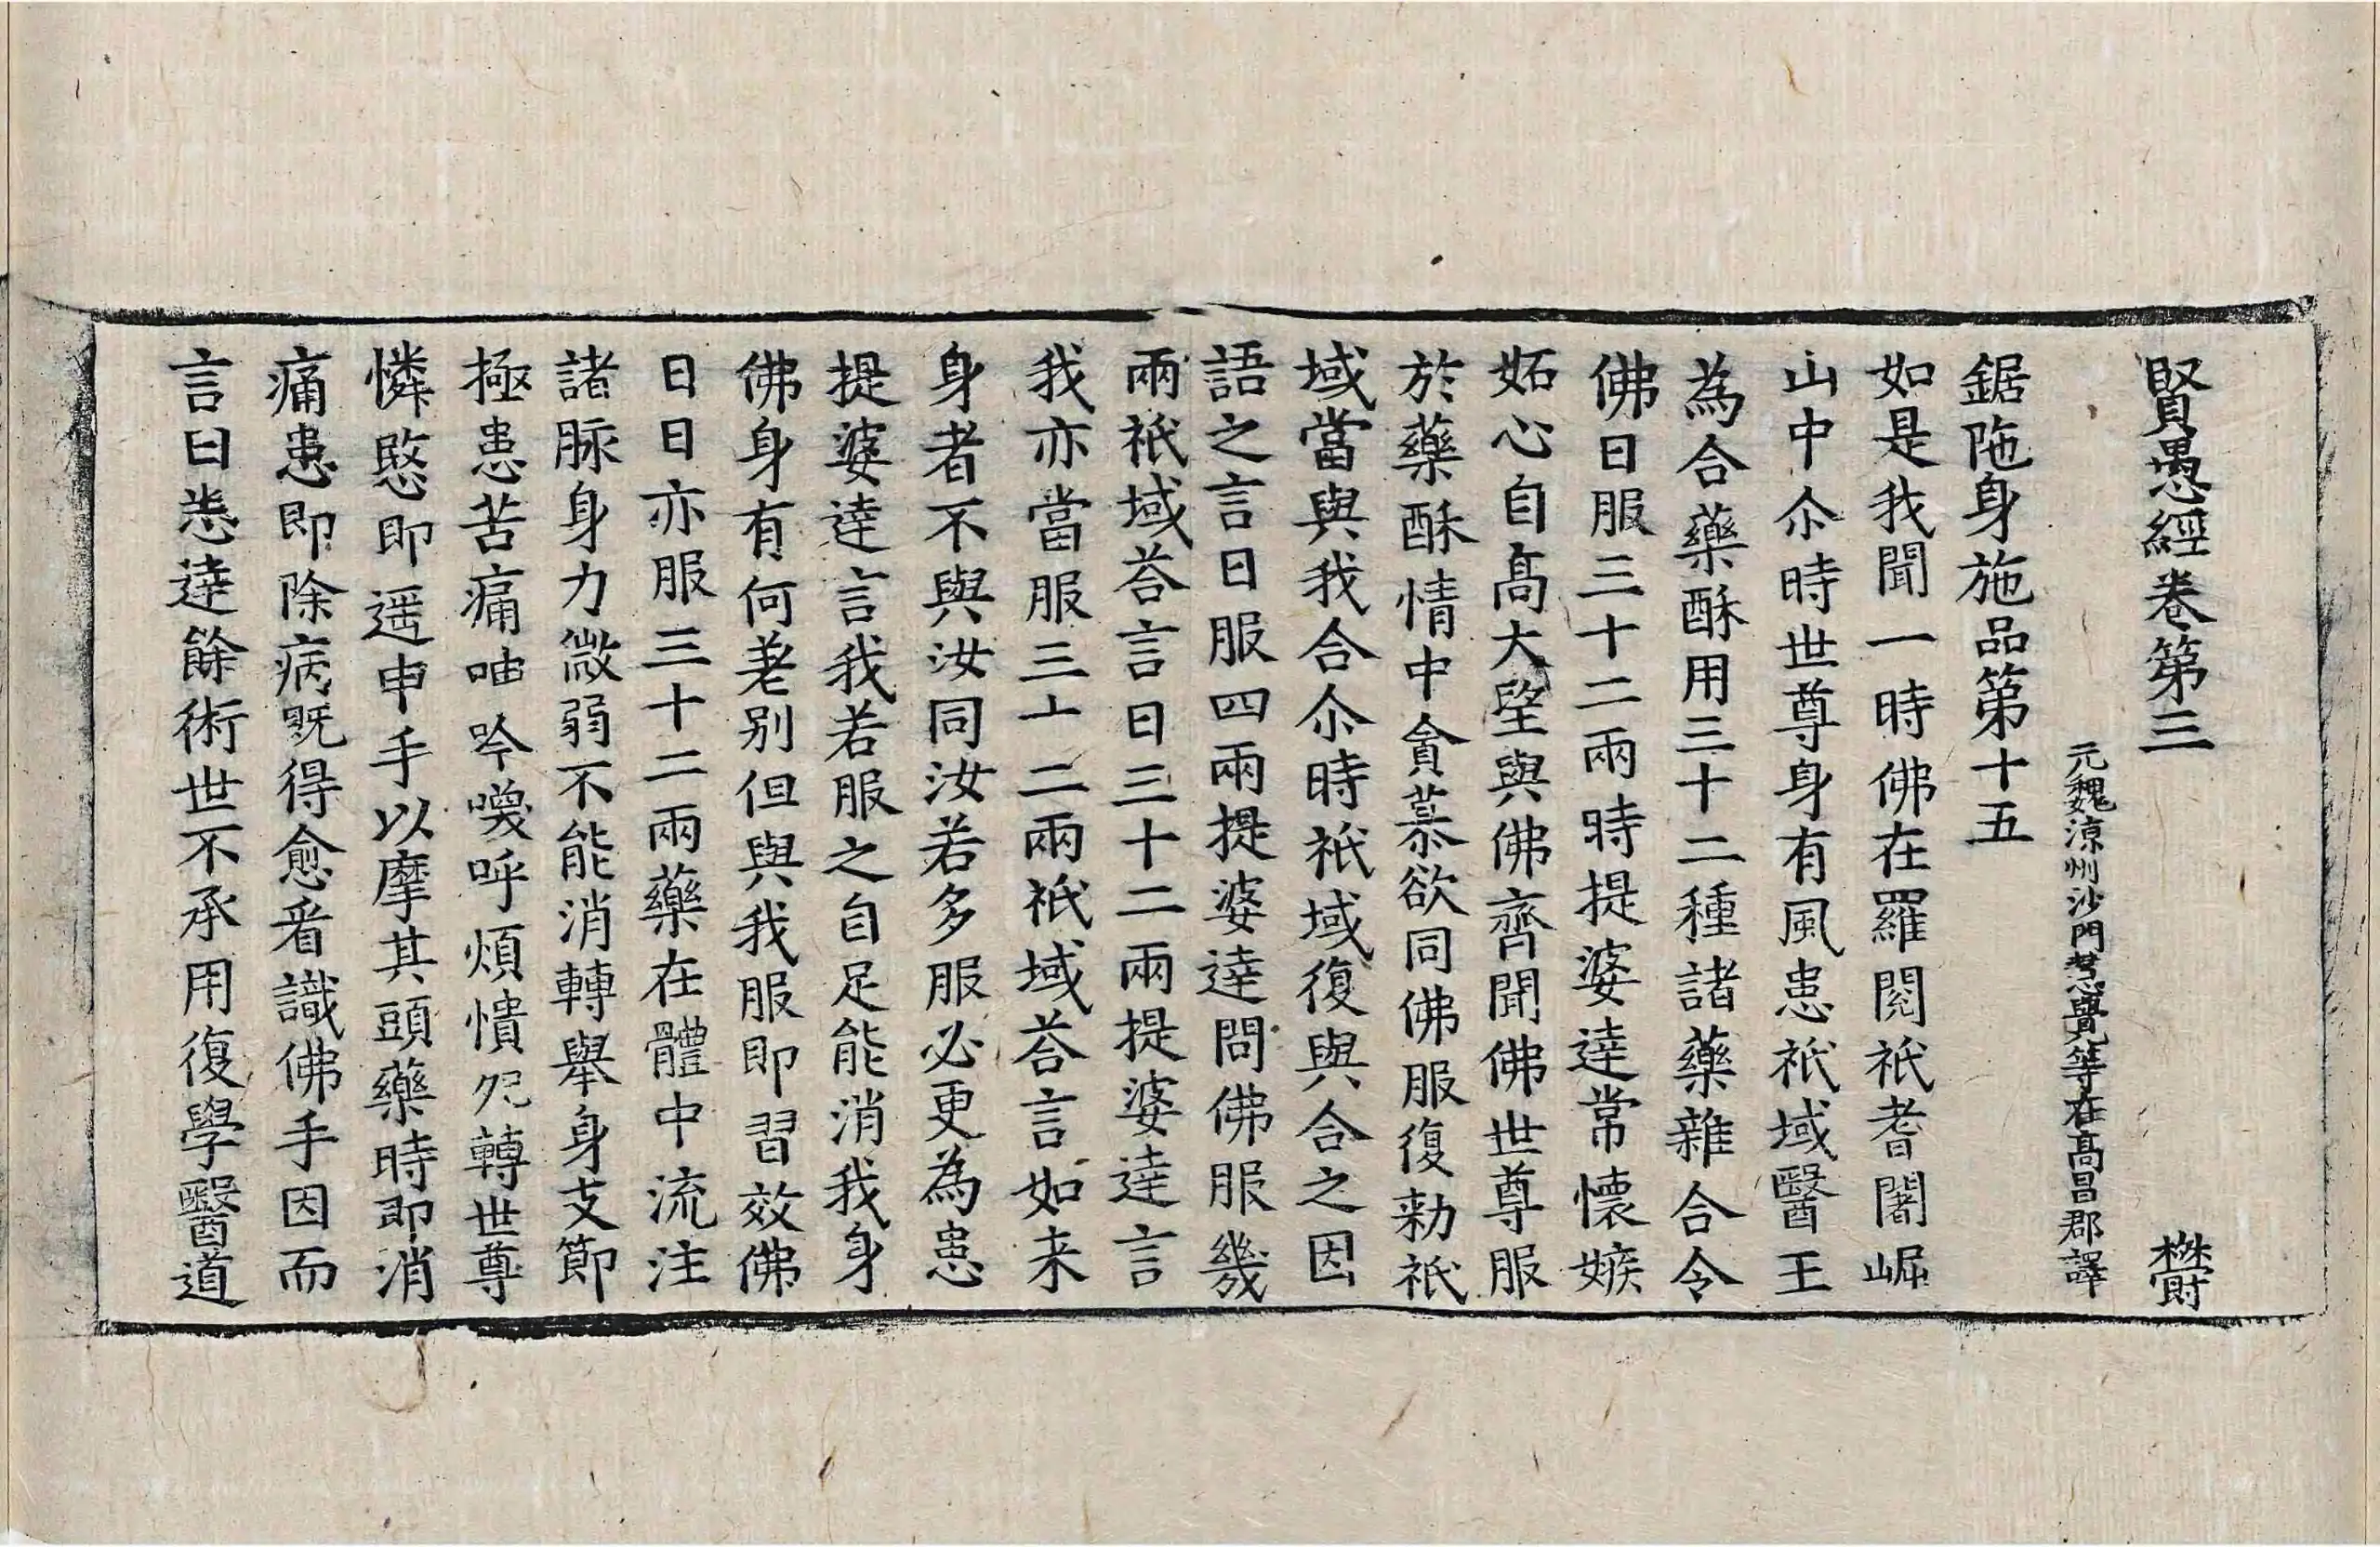 賢愚經卷第三 欝
元魏涼州沙門慧覺等在高昌郡譯
鋸陁身施品第十五
如是我聞一時佛在羅閱祇耆闍崛
山中尒時世尊身有風患祇域醫王
為合藥酥用三十二種諸藥雜合令
佛日服三十二兩時提婆達常懷嫉
妬心自高大望與佛齊聞佛世尊服
於藥酥情中貪慕欲同佛服復勑祇
域當與我合尒時祇域復與合之因
語之言日服四兩提婆達問佛服幾
兩祇域荅言日三十二兩提婆達言
我亦當服三十二兩祇域荅言如来
身者不與汝同汝若多服必更為患
提婆達言我若服之自足能消我身
佛身有何差别但與我服即習效佛
日日亦服三十二兩藥在體中流注
諸脉身力微弱不能消轉舉身支節
極患苦痛呻吟喚呼煩憒宛轉世尊
憐愍即遥申手以摩其頭藥時即消
痛患即除病既得愈看識佛手因而
言曰悉達餘術世不承用復學醫道